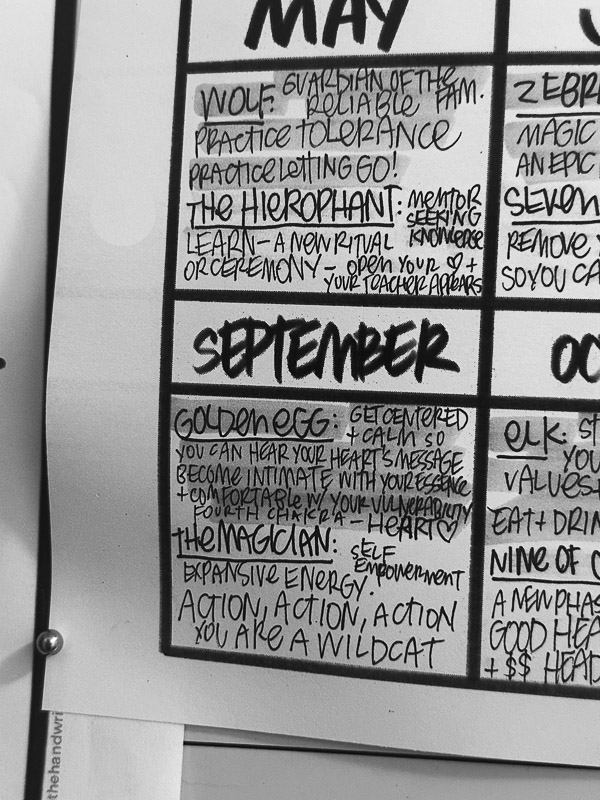 MAY
WOLF: GUARDIAN OF THE
RELIABLE FAM.
PRACTICE TOLERANCE
PRACTICE LETTING GO!
THE HIEROPHANT: MENTOR
SEEKING
KNOWLEDGE
LEARN - A NEW RITUAL
OR CEREMONY - OPEN YOUR ♡ +
YOUR TEACHER APPEARS
ZEBR
MAGIC
AN EPIC
SEVEN
REMOVE Y
SO YOU CA
SEPTEMBER
GOLDEN EGG: GET CENTERED
+ CALM SO
YOU CAN HEAR YOUR HEART'S MESSAGE
BECOME INTIMATE WITH YOUR ESSENCE
+ COMFORTABLE W/ YOUR VULNERABILITY
FOURTH CHAKRA - HEART ♡
THE MAGICIAN: SELF
EMPOWERMENT
EXPANSIVE ENERGY.
ACTION, ACTION, ACTION
YOU ARE A WILDCAT
OC
ELK: ST
YOU
VALUES +
EAT + DRIN
NINE OF C
A NEW PHAS
GOOD HEA
+ $$ HEAD
thehandwri